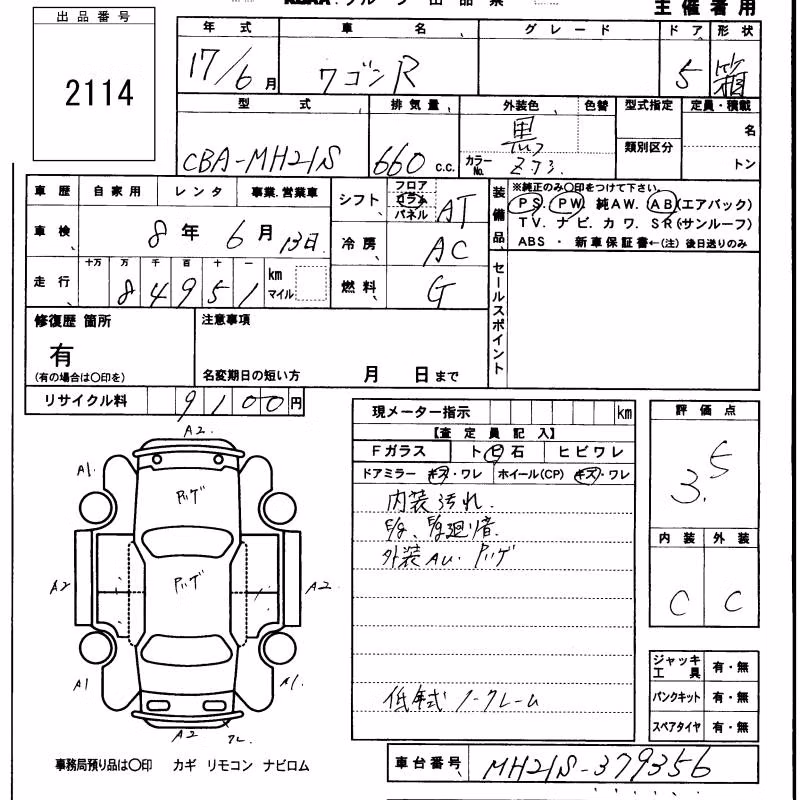 主催者用
出品番号
2114
年式 車名 グレード ドア 形状
17/6月 ワゴンR 5 箱
型式 排気量 外装色 色替 型式指定 定員・積載
CBA-MH21S 660 c.c. 黒 カラーNo. ZJ3 類別区分 名 トン
車歴 自家用 レンタ 事業.営業車
車検 8年 6月 13日
走行 十万 万 千 百 十 一 km マイル
84951
シフト フロア コラム パネル AT
冷房 AC
燃料 G
装備品 ※純正のみ〇印をつけて下さい。
PS. PW. 純AW. AB(エアバック)
TV. ナビ. カワ. SR(サンルーフ)
ABS ・ 新車保証書←(注) 後日送りのみ
セールスポイント
修復歴 箇所
有
(有の場合は〇印を)
注意事項
名変期日の短い方 月 日まで
リサイクル料 9100円
現メーター指示 km
【査定員記入】
Fガラス トビ石 ヒビワレ
ドアミラー キズ・ワレ ホイール(CP) キズ・ワレ
内装汚れ.
E/g、E/g廻り音.
外装AU. アッゲ
低年式 ノークレーム
評価点
3.5
内装 外装
C C
ジャッキ工具 有・無
パンクキット 有・無
スペアタイヤ 有・無
A2.
A1.
アッゲ
A2
アッゲ
A2.
A1
A1.
A2
ワレ
事務局預り品は〇印 カギ リモコン ナビロム
車台番号 MH21S-379356